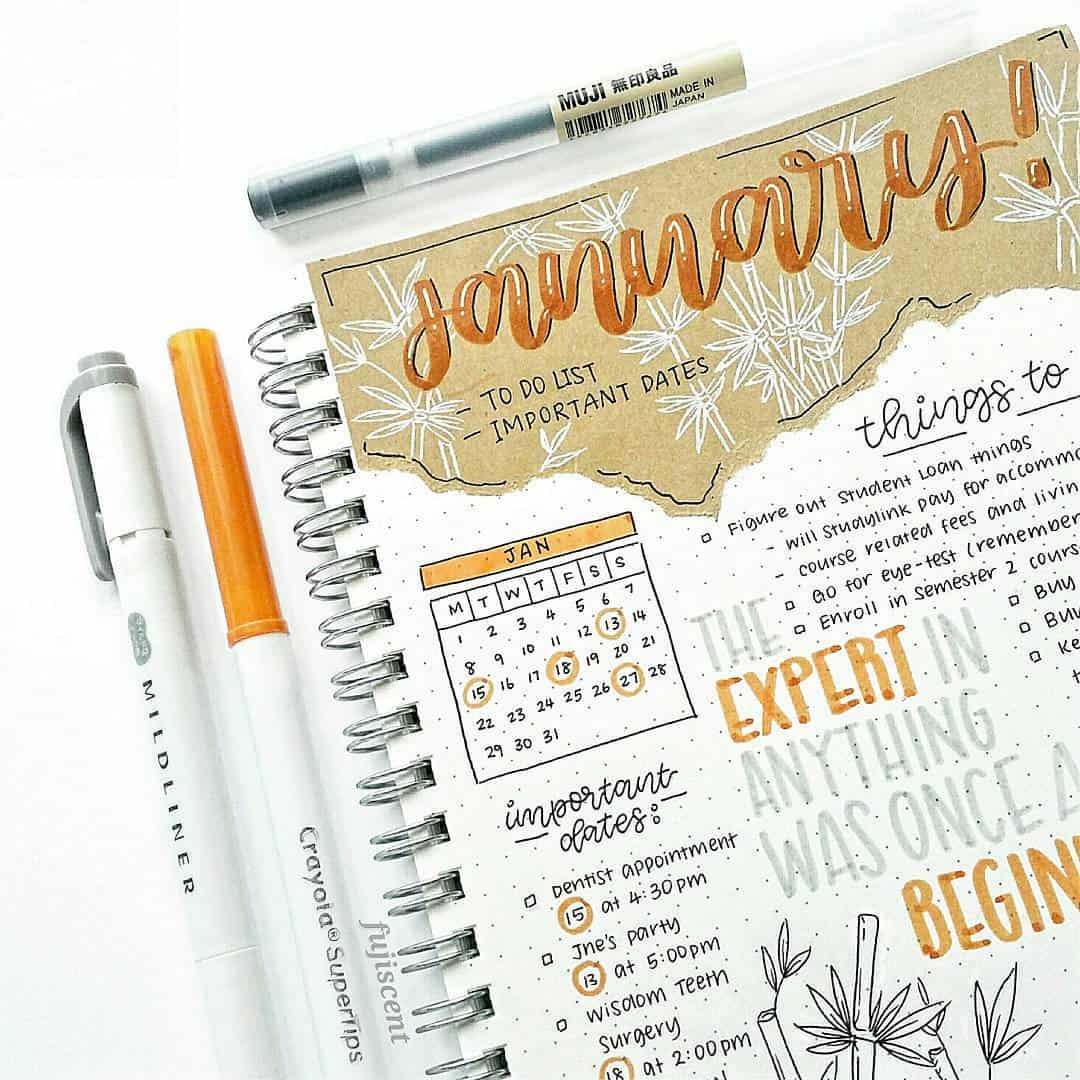 MUJI 無印良品
MADE IN
JAPAN
january!
- TO DO LIST
- IMPORTANT DATES
things to
Figure out Student Loan things
- will studylink pay for accommo
- course related fees and livin
Go for eye-test (remember
Enroll in semester 2 cours
Buy
Buy
Ke
t
JAN
M T W T F S S
1 2 3 4 5 6 7
8 9 10 11 12 13 14
15 16 17 18 19 20 21
22 23 24 25 26 27 28
29 30 31
THE
EXPERT IN
ANYTHING
WAS ONCE A
BEGIN
important
dates:
Dentist appointment
15 at 4:30pm
Jne's party
13 at 5:00pm
Wisdom Teeth
Surgery
18 at 2:00pm
MILDLINER
Crayola® SuperTips
fujiscent